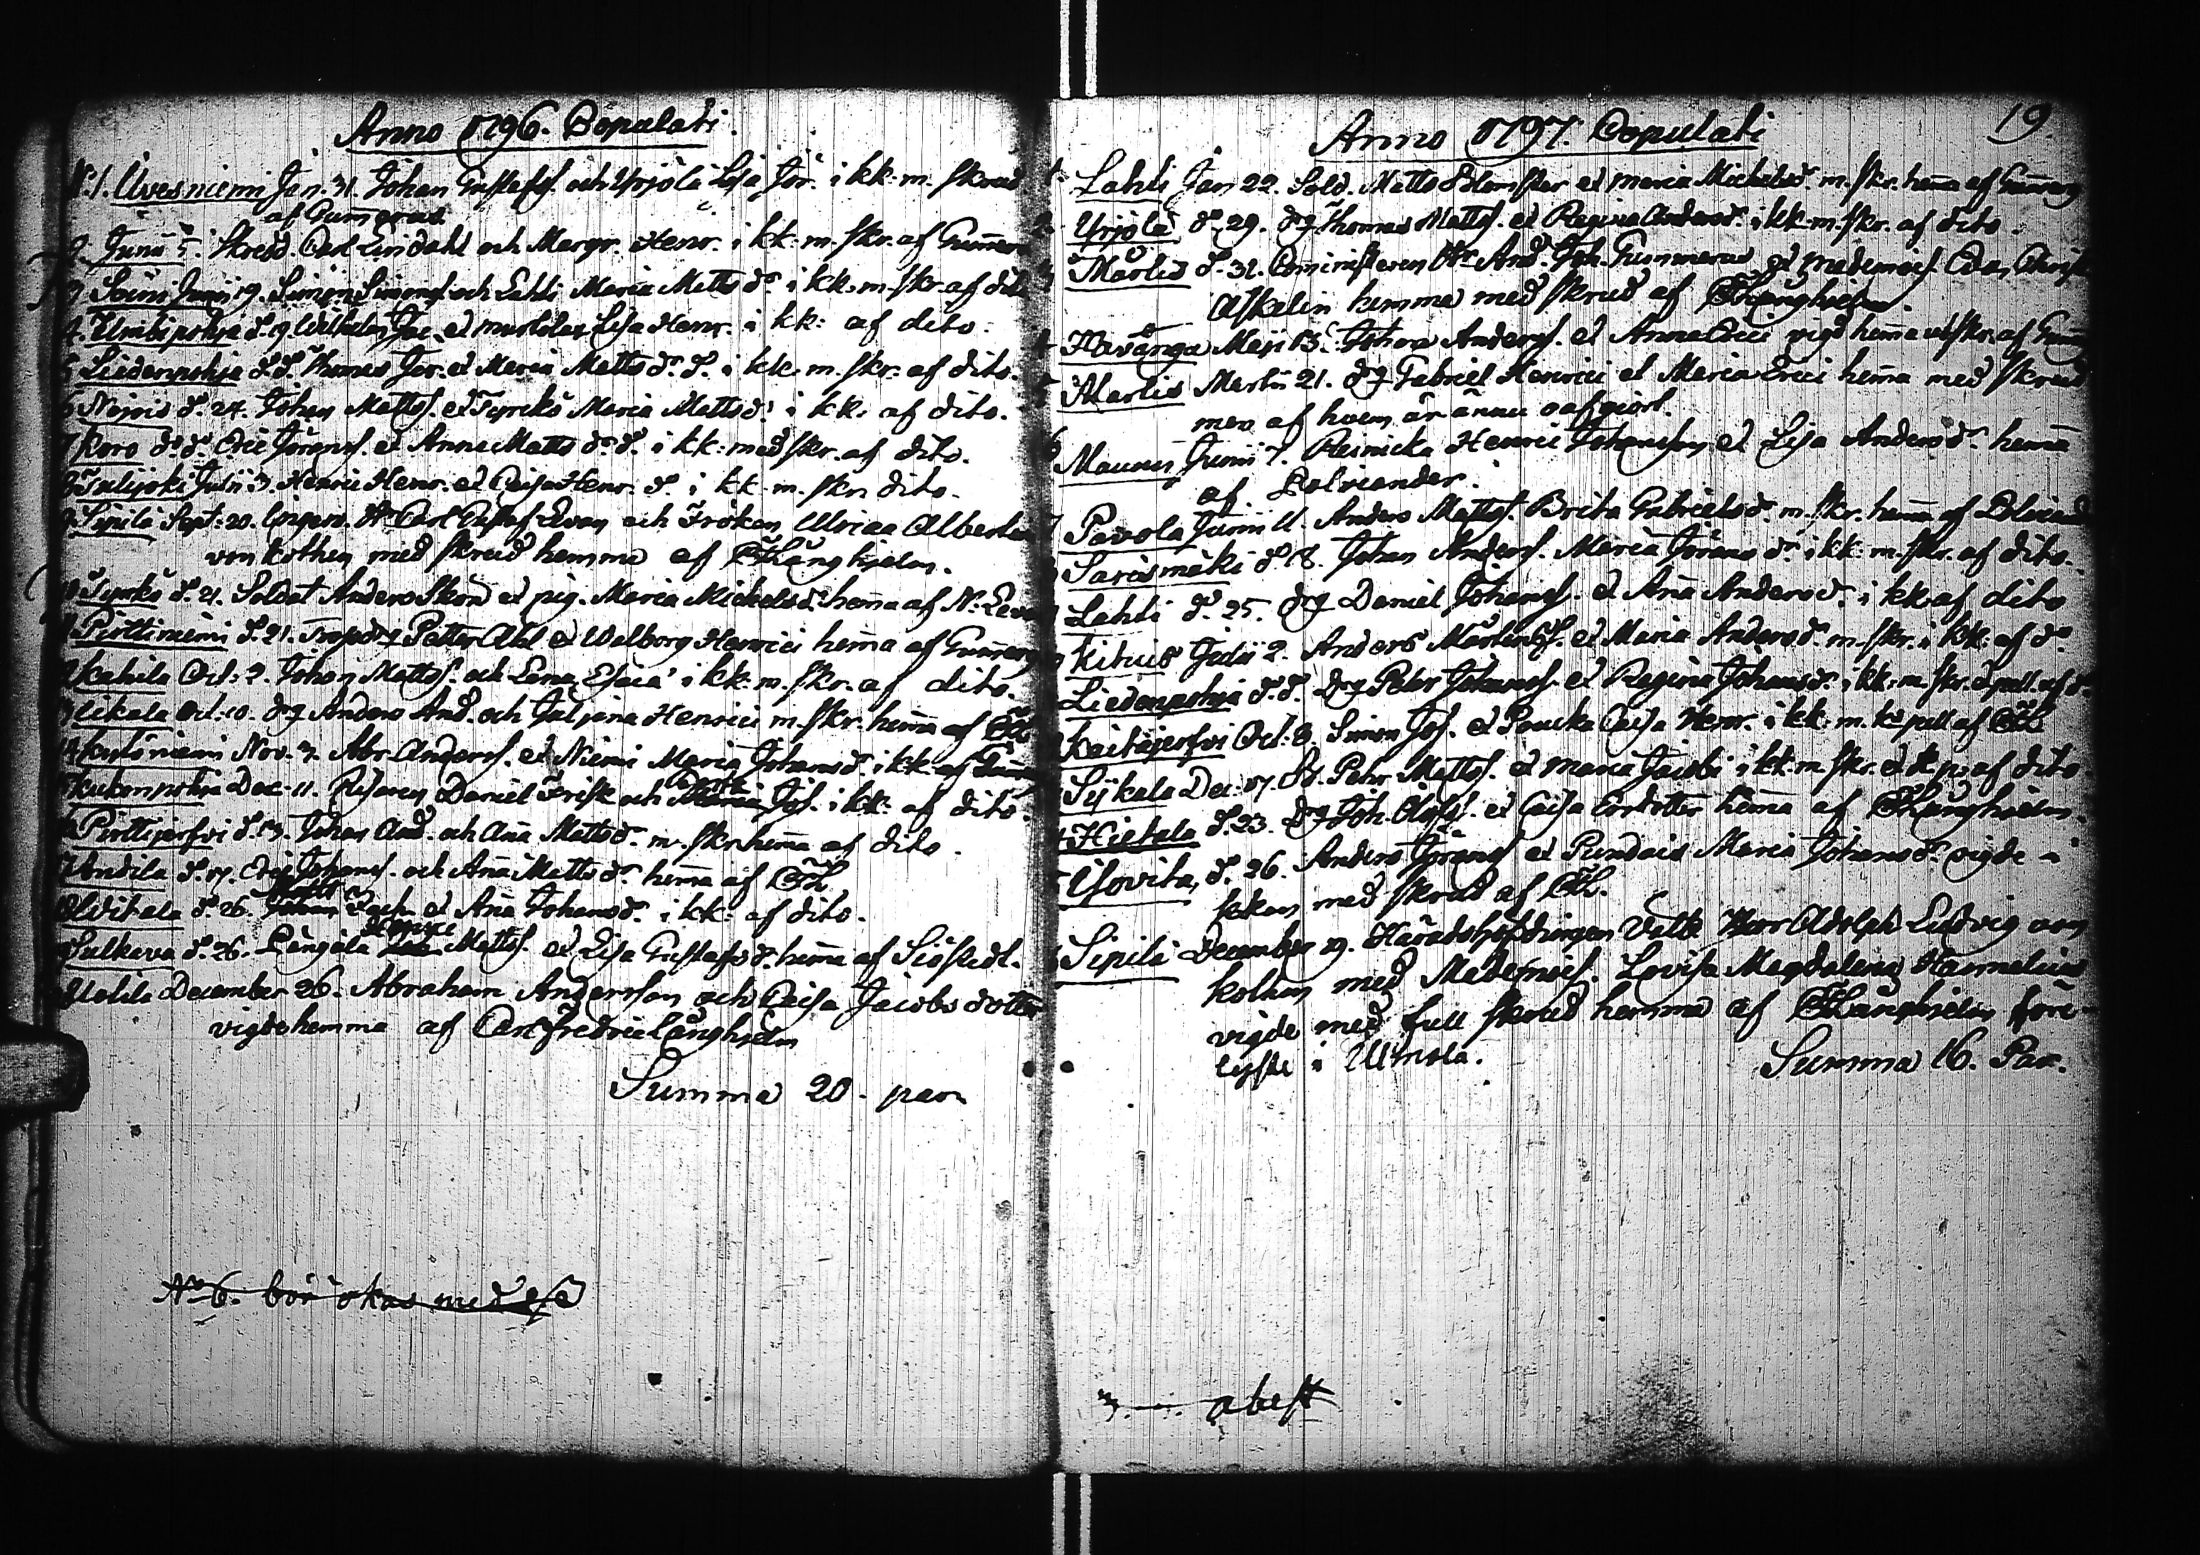 Anno 1796. Copulati.
N:1. Uvesniemi Jan. 31. Johan Gustafs. och Yrjölä Lisa Jör. i kk: m. skrud
af Gumerus
2 Juni 5. Skredd. Carl Lindahl och Margr. Henr. i kk: m. skr. af Gumerus
3 Soini Junii 19. Simon Simons. och Lahti Maria Matts dr. i kk. m. skr. af dito
4. d. 19. Wilhelm Jac. et Lisa Henr. i kk: af dito.
5 Liedenpohja d. d. Thomas Jör. et Maria Matts dr. d. i kk. m. skr. af dito.
6 d. 24. Johan Matts. et Tyrckö Maria Mattsd. i kk. af dito.
7 Koro d. d. Eric Jörans. et Anna Matts dr. d. i kk: med skr. af dito.
8 Julii 3. Henric Henr. et Caisa Henr. d. i kk. m. skr. dito.
9. Sipilä Sept: 20. Hr. Carl Gustaf Levan och Fröken Ulrica Albertina
von Kothen med skrud hemma af CFLånghjelm.
10 Tyrckö d. 21. Soldat Anders Skön et pig. Maria Mickelsd. hema af N: Levan
11 Pirttiniemi d. 21. Petter Ahl et Walborg Henrici hema af Gumerus
12 Kahila Oct: 2. Johan Matts. och Lena Esaiæ i kk. m. skr. af dito.
13 Oct: 10. drg Anders And. och Juliana Henrici m. skr. hema af CFL
14 Nov. 3. Abr. Anders. et Niemi Maria Johansd. i kk. af Gumerus
15 Kukonpohja Dec. 11. Daniel Frisk och Maria Jos. i kk: af dito.
16 Pirttijerfvi d. 13. Johan And. och Aña Mattsd. m. skr. hema af dito.
17 Andila d. 17. Eric Johans. och Aña Matts dr. hema af CFL
Matts
18 Alditala d. 26. Johan et Aña Johansd. i kk: af dito.
Henric
19 Sulkava d. 26. Långäla Matts. et Lisa Gustafsd. hema af Siöstedt.
20 December 26. Abraham Andersson och Caisa Jacobs dotter
vigde hemma af Carl Fredric Långhjelm
Summa 20. par
No 6. bör ökas med
19
Anno 1797. Copulati
1. Lahti Jan 22. Sold. Matts Blomster et Maria Michelsd. m. skr. hema af Gumerus
2 Yrjölä d. 29. drg Thomas Matts. et Regina Andersd. i kk. m. skr. af dito.
3 Mårtis d. 31. Comministeren Hr And. Joh. Gummerus et Mademois.
Askelin hemma med skrud af CFLånghielm.
4 Havanga Maji 13. Johan Anders. et Anna Erici vigd hema
5 Martis Martii 21. drg Gabriel Henrici et Maria Erici hema med skrud
men af hvem är ännu oafgiort.
6 Maunus Junii 7. Henric Johansson et Lisa Andersd. hema
af Polviander.
7 Pavola Junii 11. Anders Matts. Brita Gabrielsd. m. skr. hema af
8 Sarismäki d. 18. Johan Anders. Maria Jörans dr. i kk. m. skr. af dito.
9 Lahti d. 25. drg Daniel Johans. et Aña Andersd. i kk af dito
10 Kituis Julii 2. Anders Mårtens. et Maria Andersd. m. skr. i kk: af do
11 Liedenpohja d. d. drg Petr Johans. et Regina Johansd. i kk: m. skr. af do
12 Keitejerfvi Oct: 8. Simon Jos. et Poucka Caisa Henr. i kk. m. af CFL
13 Sijkala Dec: 17. Dr. Pehr Matts. et Maria Jacobi i kk. m skr. af dito.
14 Hietala d. 23. drg Joh. Olofs. et Caisa hema af CFLånghielm.
15 Yovita, d. 26. Anders Görans et Pundais Maria Johansd. vigde i
kkan med skrud af CFL.
16 Sipilä December 19. Häradshöfdingen Välb. Herr Adolph Ludvig von
Kothen med Mademois. Lovisa Magdalena Harmelius
vigde med full skrud hemma af CFLånghielm före-
lyste i Ulfsela.
Summa 16. Par.
3. abest